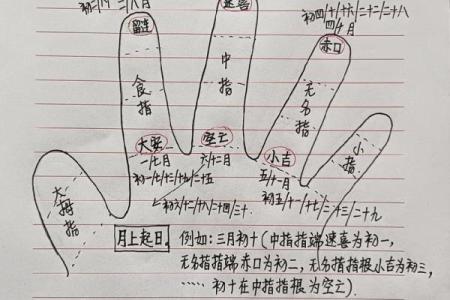 初四/十/十六/二十二/二十八
四/十月
留连
速喜
赤口
食指
中指
无名指
小指
大拇指
大安
空亡
小吉
一/七月
六/十二月
五/十一月
初一/七/十三/十九/二十五
初五/十一/十七/二十三/二十九
初六/十二/十八/二十四/三十
月上起日
例如:三月初十(中指指端速喜为初一,
无名指指端赤口为初二,无名指指根小吉为初三,
……初十在中指指根为空亡).